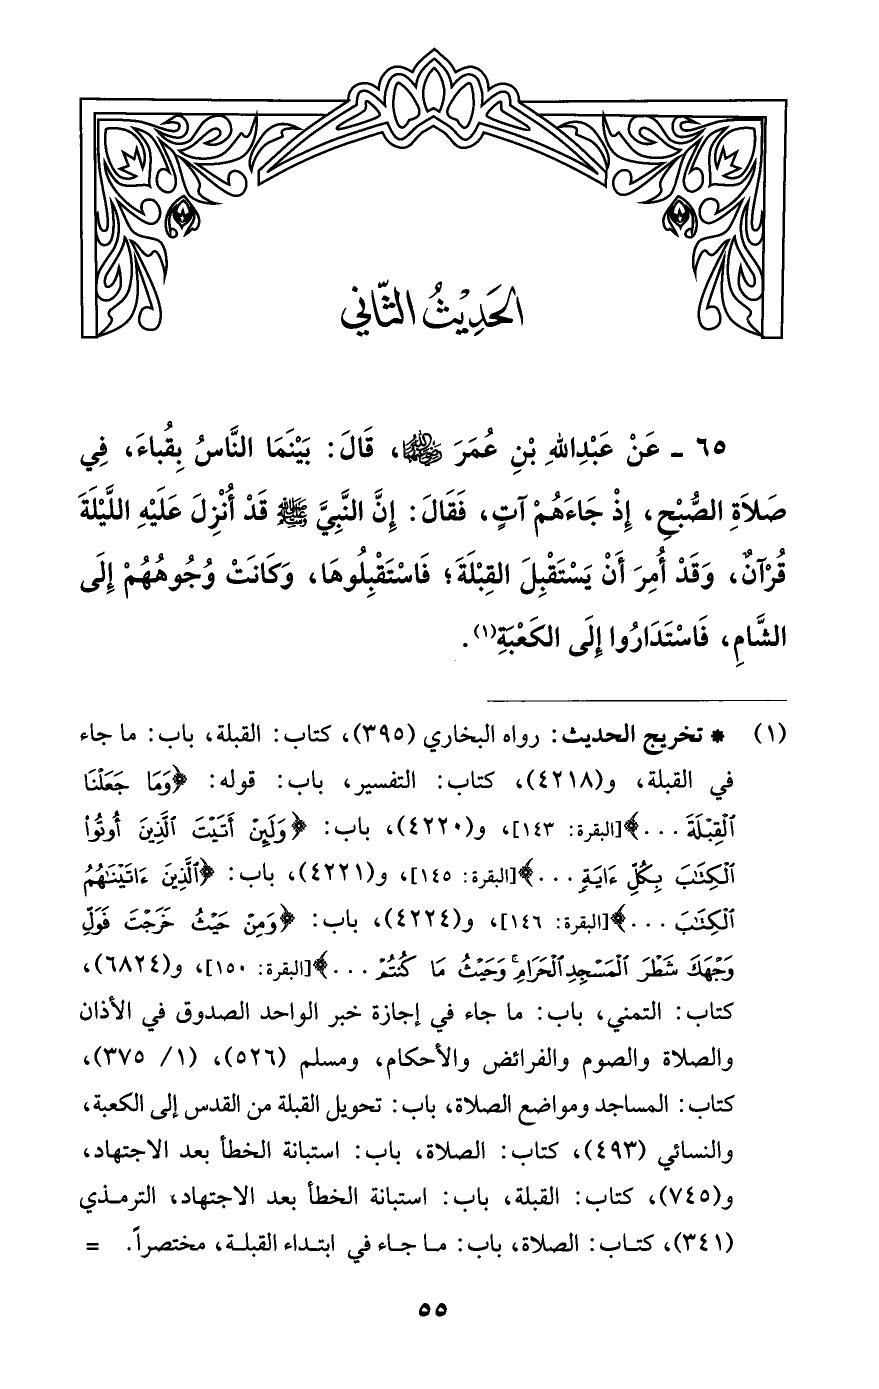 الحَدِيْثُ الثَّاني
٦٥ - عَنْ عَبْدِاللهِ بْنِ عُمَرَ ﵄، قَالَ: بَيْنَمَا النَّاسُ بِقُباءَ، فِي
صَلَاةِ الصُّبْحِ، إِذْ جَاءَهُمْ آتٍ، فَقَالَ: إِنَّ النَّبِيَّ ﷺ قَدْ أُنْزِلَ عَلَيْهِ اللَّيْلَةَ
قُرْآنٌ، وَقَدْ أُمِرَ أَنْ يَسْتَقْبِلَ القِبْلَةَ؛ فَاسْتَقْبِلُوهَا، وَكَانَتْ وُجُوهُهُمْ إِلَى
الشَّامِ، فَاسْتَدَارُوا إِلَى الكَعْبَةِ(١).
(١) * تخريج الحديث: رواه البخاري (٣٩٥)، كتاب: القبلة، باب: ما جاء
في القبلة، و(٤٢١٨)، كتاب: التفسير، باب: قوله: ﴿وَمَا جَعَلْنَا
ٱلْقِبْلَةَ ...﴾[البقرة: ١٤٣]، و(٤٢٢٠)، باب: ﴿وَلَئِنْ أَتَيْتَ ٱلَّذِينَ أُوتُوا۟
ٱلْكِتَٰبَ بِكُلِّ ءَايَةٍ ...﴾[البقرة: ١٤٥]، و(٤٢٢١)، باب: ﴿ٱلَّذِينَ ءَاتَيْنَٰهُمُ
ٱلْكِتَٰبَ ...﴾[البقرة: ١٤٦]، و(٤٢٢٤)، باب: ﴿وَمِنْ حَيْثُ خَرَجْتَ فَوَلِّ
وَجْهَكَ شَطْرَ ٱلْمَسْجِدِ ٱلْحَرَامِ ۚ وَحَيْثُ مَا كُنتُمْ ...﴾[البقرة: ١٥٠]، و(٦٨٢٤)،
كتاب: التمني، باب: ما جاء في إجازة خبر الواحد الصدوق في الأذان
والصلاة والصوم والفرائض والأحكام، ومسلم (٥٢٦)، (١/ ٣٧٥)،
كتاب: المساجد ومواضع الصلاة، باب: تحويل القبلة من القدس إلى الكعبة،
والنسائي (٤٩٣)، كتاب: الصلاة، باب: استبانة الخطأ بعد الاجتهاد،
و(٧٤٥)، كتاب: القبلة، باب: استبانة الخطأ بعد الاجتهاد، الترمذي
(٣٤١)، كتاب: الصلاة، باب: ما جاء في ابتداء القبلة، مختصراً. =
٥٥